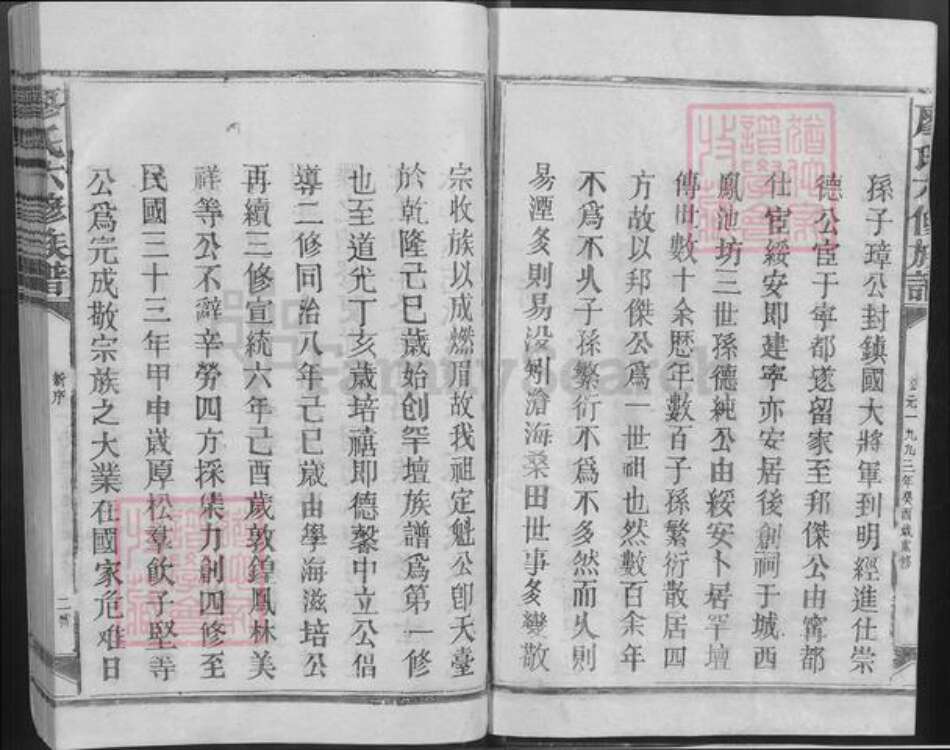 廖氏六修族譜
公元一九九三年癸酉歲重修
孫子璋公封鎮國大將軍到明經進仕崇
德公宦于寧都遂留家至邦傑公由寧都
仕宦綏安即建寧亦安居後創祠于城西
鳳池坊三世孫德純公由綏安卜居罕壇
傳世數十余歷年數百子孫繁衍散居四
方故以邦傑公爲一世祖也然數百余年
不爲不久子孫繁衍不爲不多然而久則
易湮多則易没矧滄海桑田世事多變敬
宗收族以成燃眉故我祖定魁公卽天臺
於乾隆己巳歲始创罕壇族譜爲第一修
也至道光丁亥歲培禧即德馨中立公倡
導二修同治八年己巳歲由學海滋培公
再續三修宣統六年己酉歲敦鍠鳳林美
祥等公不辭辛勞四方採集力創四修至
民國三十三年甲申歲厚松羣飲子堅等
公爲完成敬宗族之大業在國家危难日
廖氏六修族普
新序
二
FamilySearch